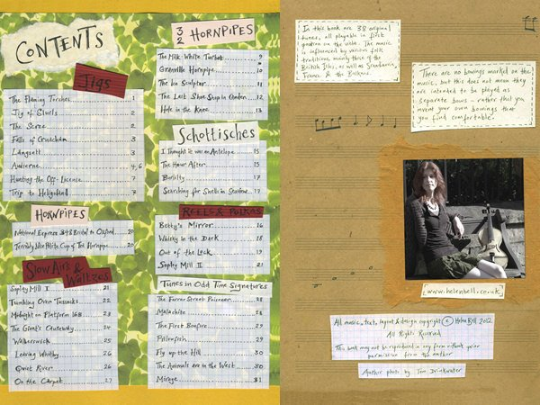 CONTENTS
Jigs
The Flaming Torches 1
Jig of Slurs 2
The Scree 2
Falls of 3
Langsett 3
4,5
Hunting the Off-Licence 7
Trip to 7
HORNPIPES
National Express to Oxford 20
Terribly Nice Cup of Tea Hornpipe 20
Slow Airs & Waltzes
Sapley Mill I 21
Trunkling Over Tussocks 22
Midnight on Platform 23
The Giant's 24
Walberswick 25
Leaving Whitby 26
Quiet River 26
On the Carpet 27
3/2 HORNPIPES
The Milk White Turbot 9
Grenville Hornpipe 10
The Ice Sculptor 11
The Last Shoe Shop in 12
Hole in the Knee 13
Schottisches
I Thought it was an Antelope 15
The Hour After 15
17
Searching for in 17
REELS & POLKAS
Betty's Mirror 16
Waiting in the Dark 18
Out of the Loch 19
Sapley Mill II 21
Tunes in Odd Time Signatures
The Farm Street Poisoner 28
Malachite 28
The First Bonfire 29
29
Fly up the Hill 30
The Animals are in the West 30
Mirage 31
In this book are 38 original
tunes, all playable in first
position on the violin. The music
is influenced by various folk
traditions, mainly those of the
British Isles, as well as Scandinavia,
France & the Balkans.
There are no bowings marked on the
music, but this does not mean they
are intended to be played as
separate bows - rather that you
invent your own bowings that
you find comfortable.
www.helenbell.co.uk
All music, text, layout & design copyright © Helen Bell 2012
All Rights Reserved
This book may not be reproduced in any form without prior
permission from the author
Author photo by Tom Drinkwater